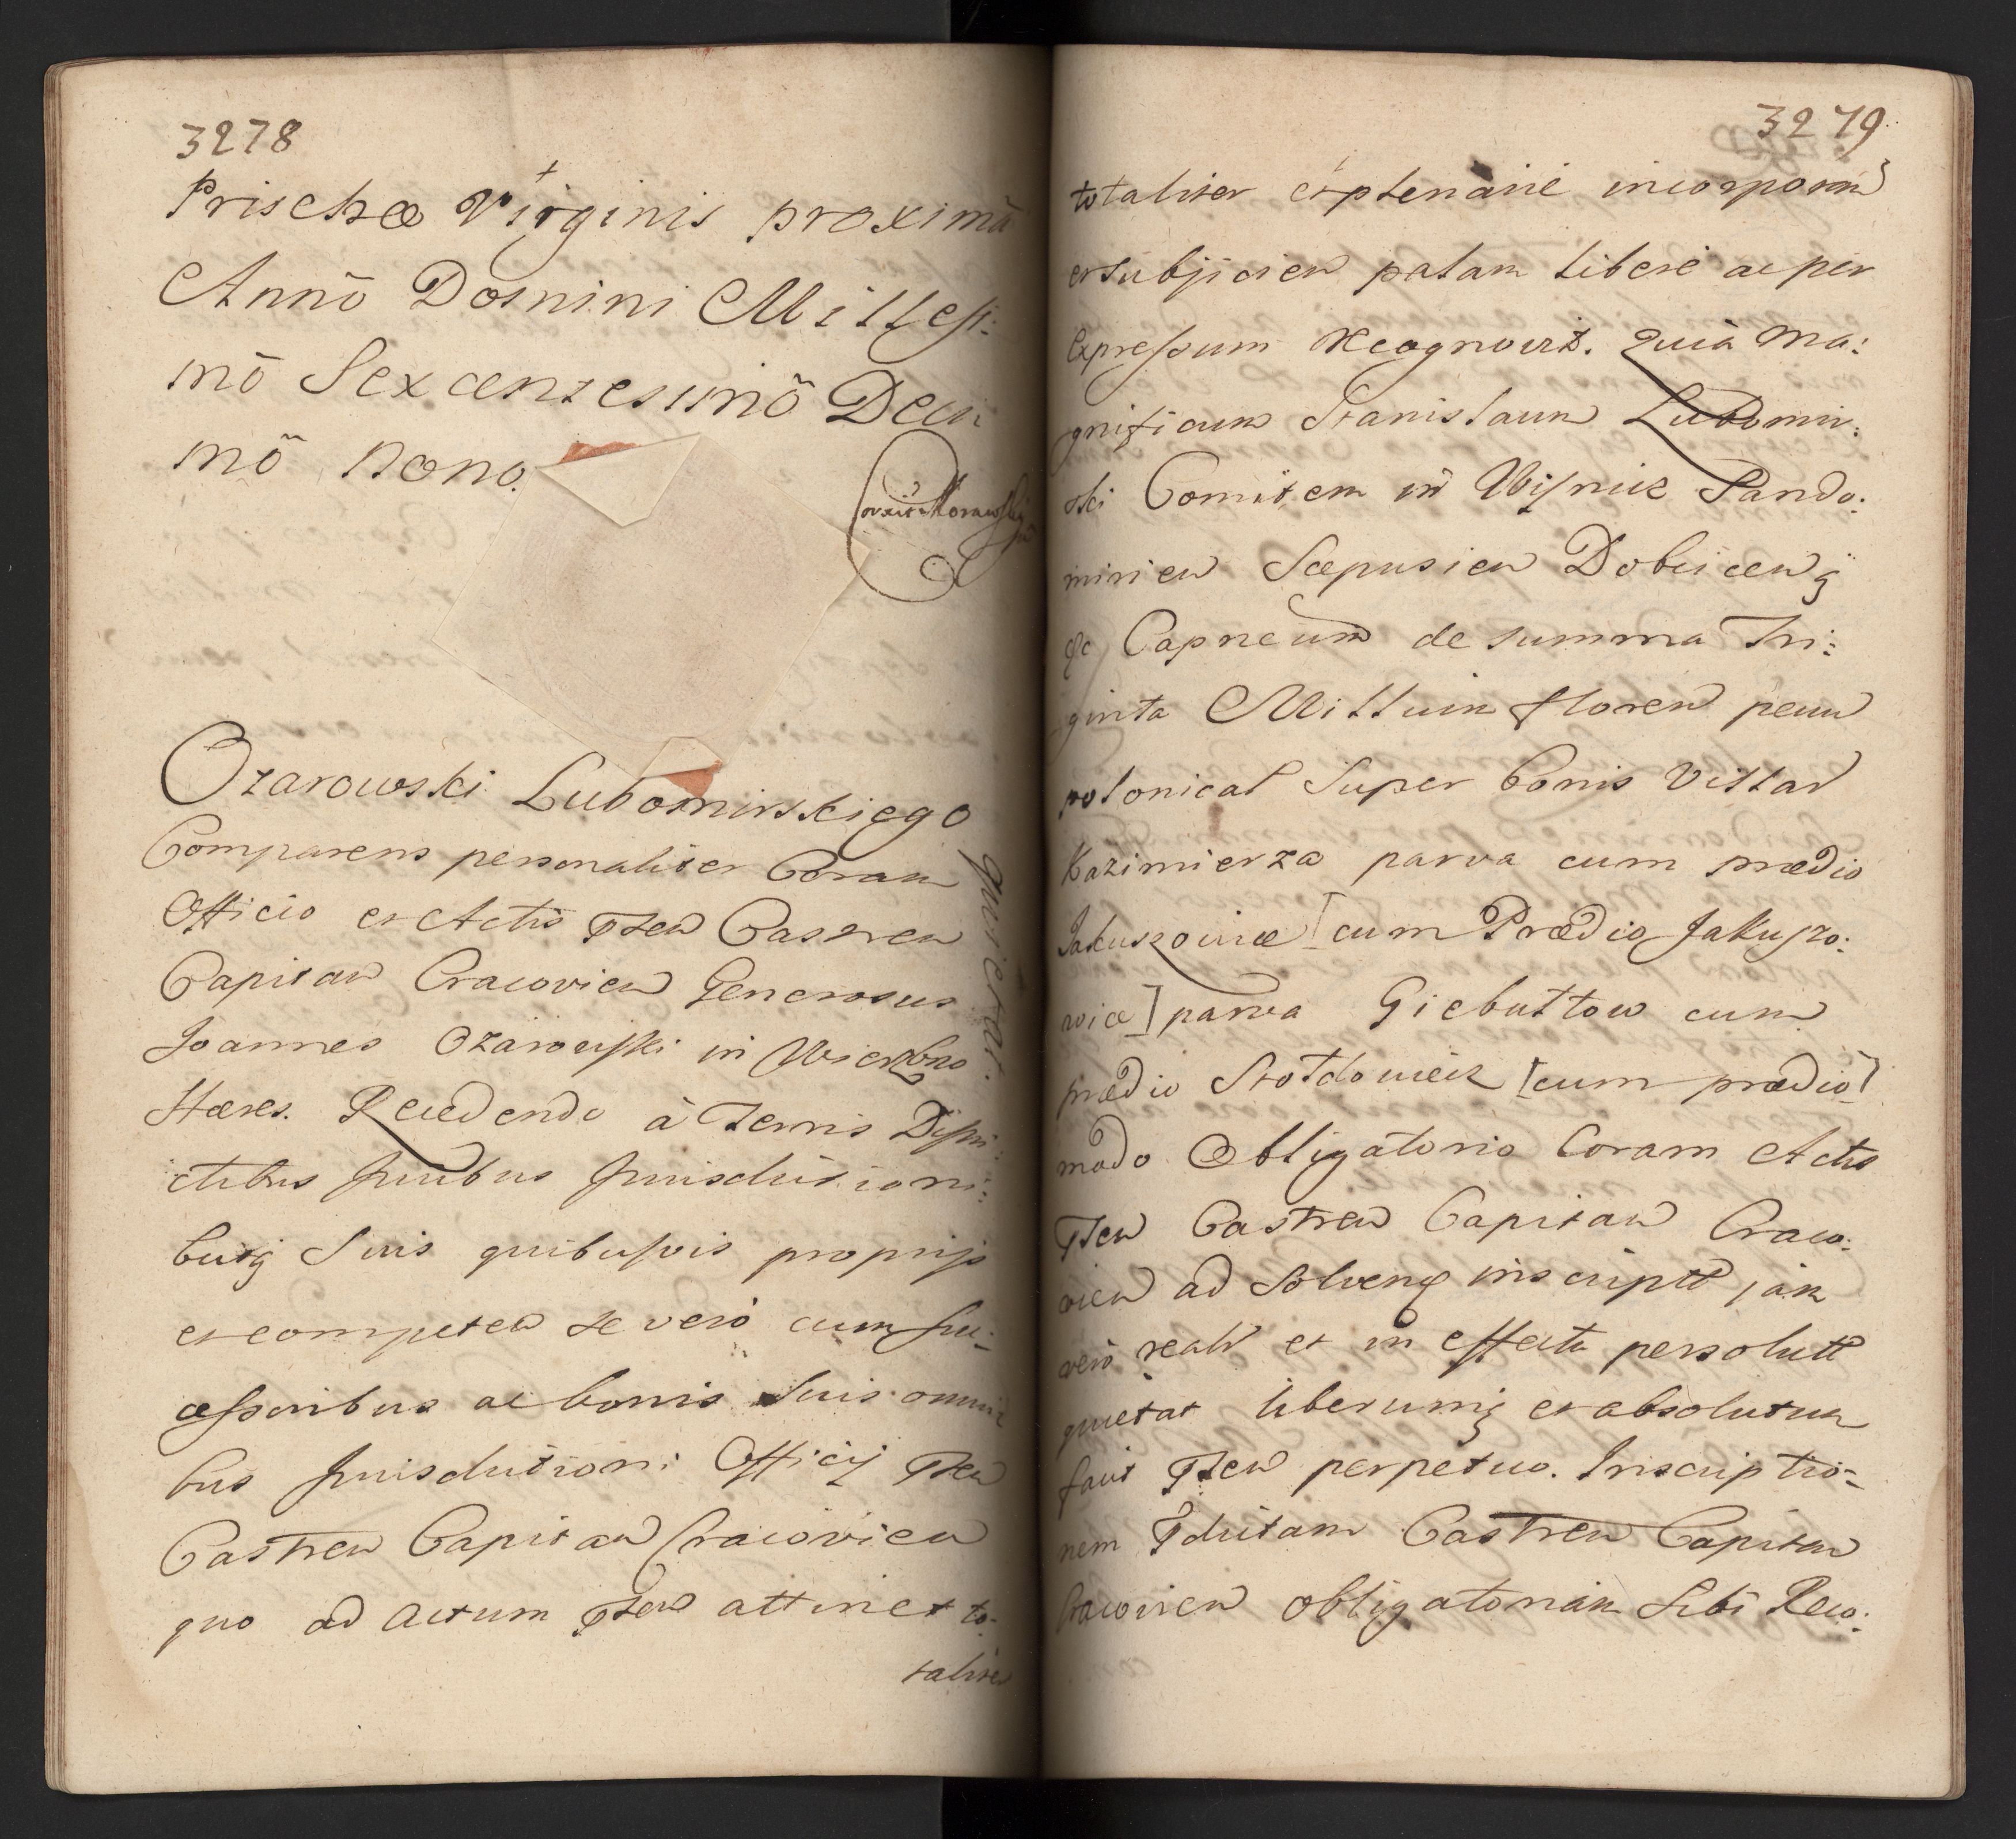 3278
Prischæ Virginis proximâ
Annô Domini Millesi:
mô Sexcentesimô Deci
mô nono.
Ożarowski Lubomirskiego
quietat.
Comparens personaliter Coram
Officio et Actis pñten Castren
Capitan Cracovien Generosus
Joannes Ożarowski in Wierzbno
Hæres. Recedendo à Terris Distri:
ctibus Juribus Jurisdictioni:
busq́ Suis quibusvis proprijs
et competen se verò cum suc:
cessoribus ac bonis Suis omni
bus Jurisdictioni Officij pñten
Castren Capitan Cracovien
quo ad actum pñtem attinet to-
taliter
3279
totaliter et plenarie incorporan
et subjicien palam liberè ac per
expressum recognovit. Quià Ma:
gnificum Stanislaum Lubomir:
ski Comitem in Wisnicz Sando:
mirien Scepusien Dobczicenq́
&c Capneum de summa Tri:
ginta Millium floren pecun
polonical Super bonis Villar
Kazimierza parva cum prædio
Jakuszowice [cum Prædio Jakuszo:
wice] parva Giebułtow cum
prædio Stotdowiek [cum prædio]
modo Obligatorio Coram Actis
pñten Castren Capitan Craco:
vien ad solven inscript jàm
verò reali et in effectu persolut
quietat liberumq́ et absolutum
facit pñten perpetuo. Inscriptio=
nem pdictam Castren Capitan
Cracovien obligatoriam Sibi Reco: